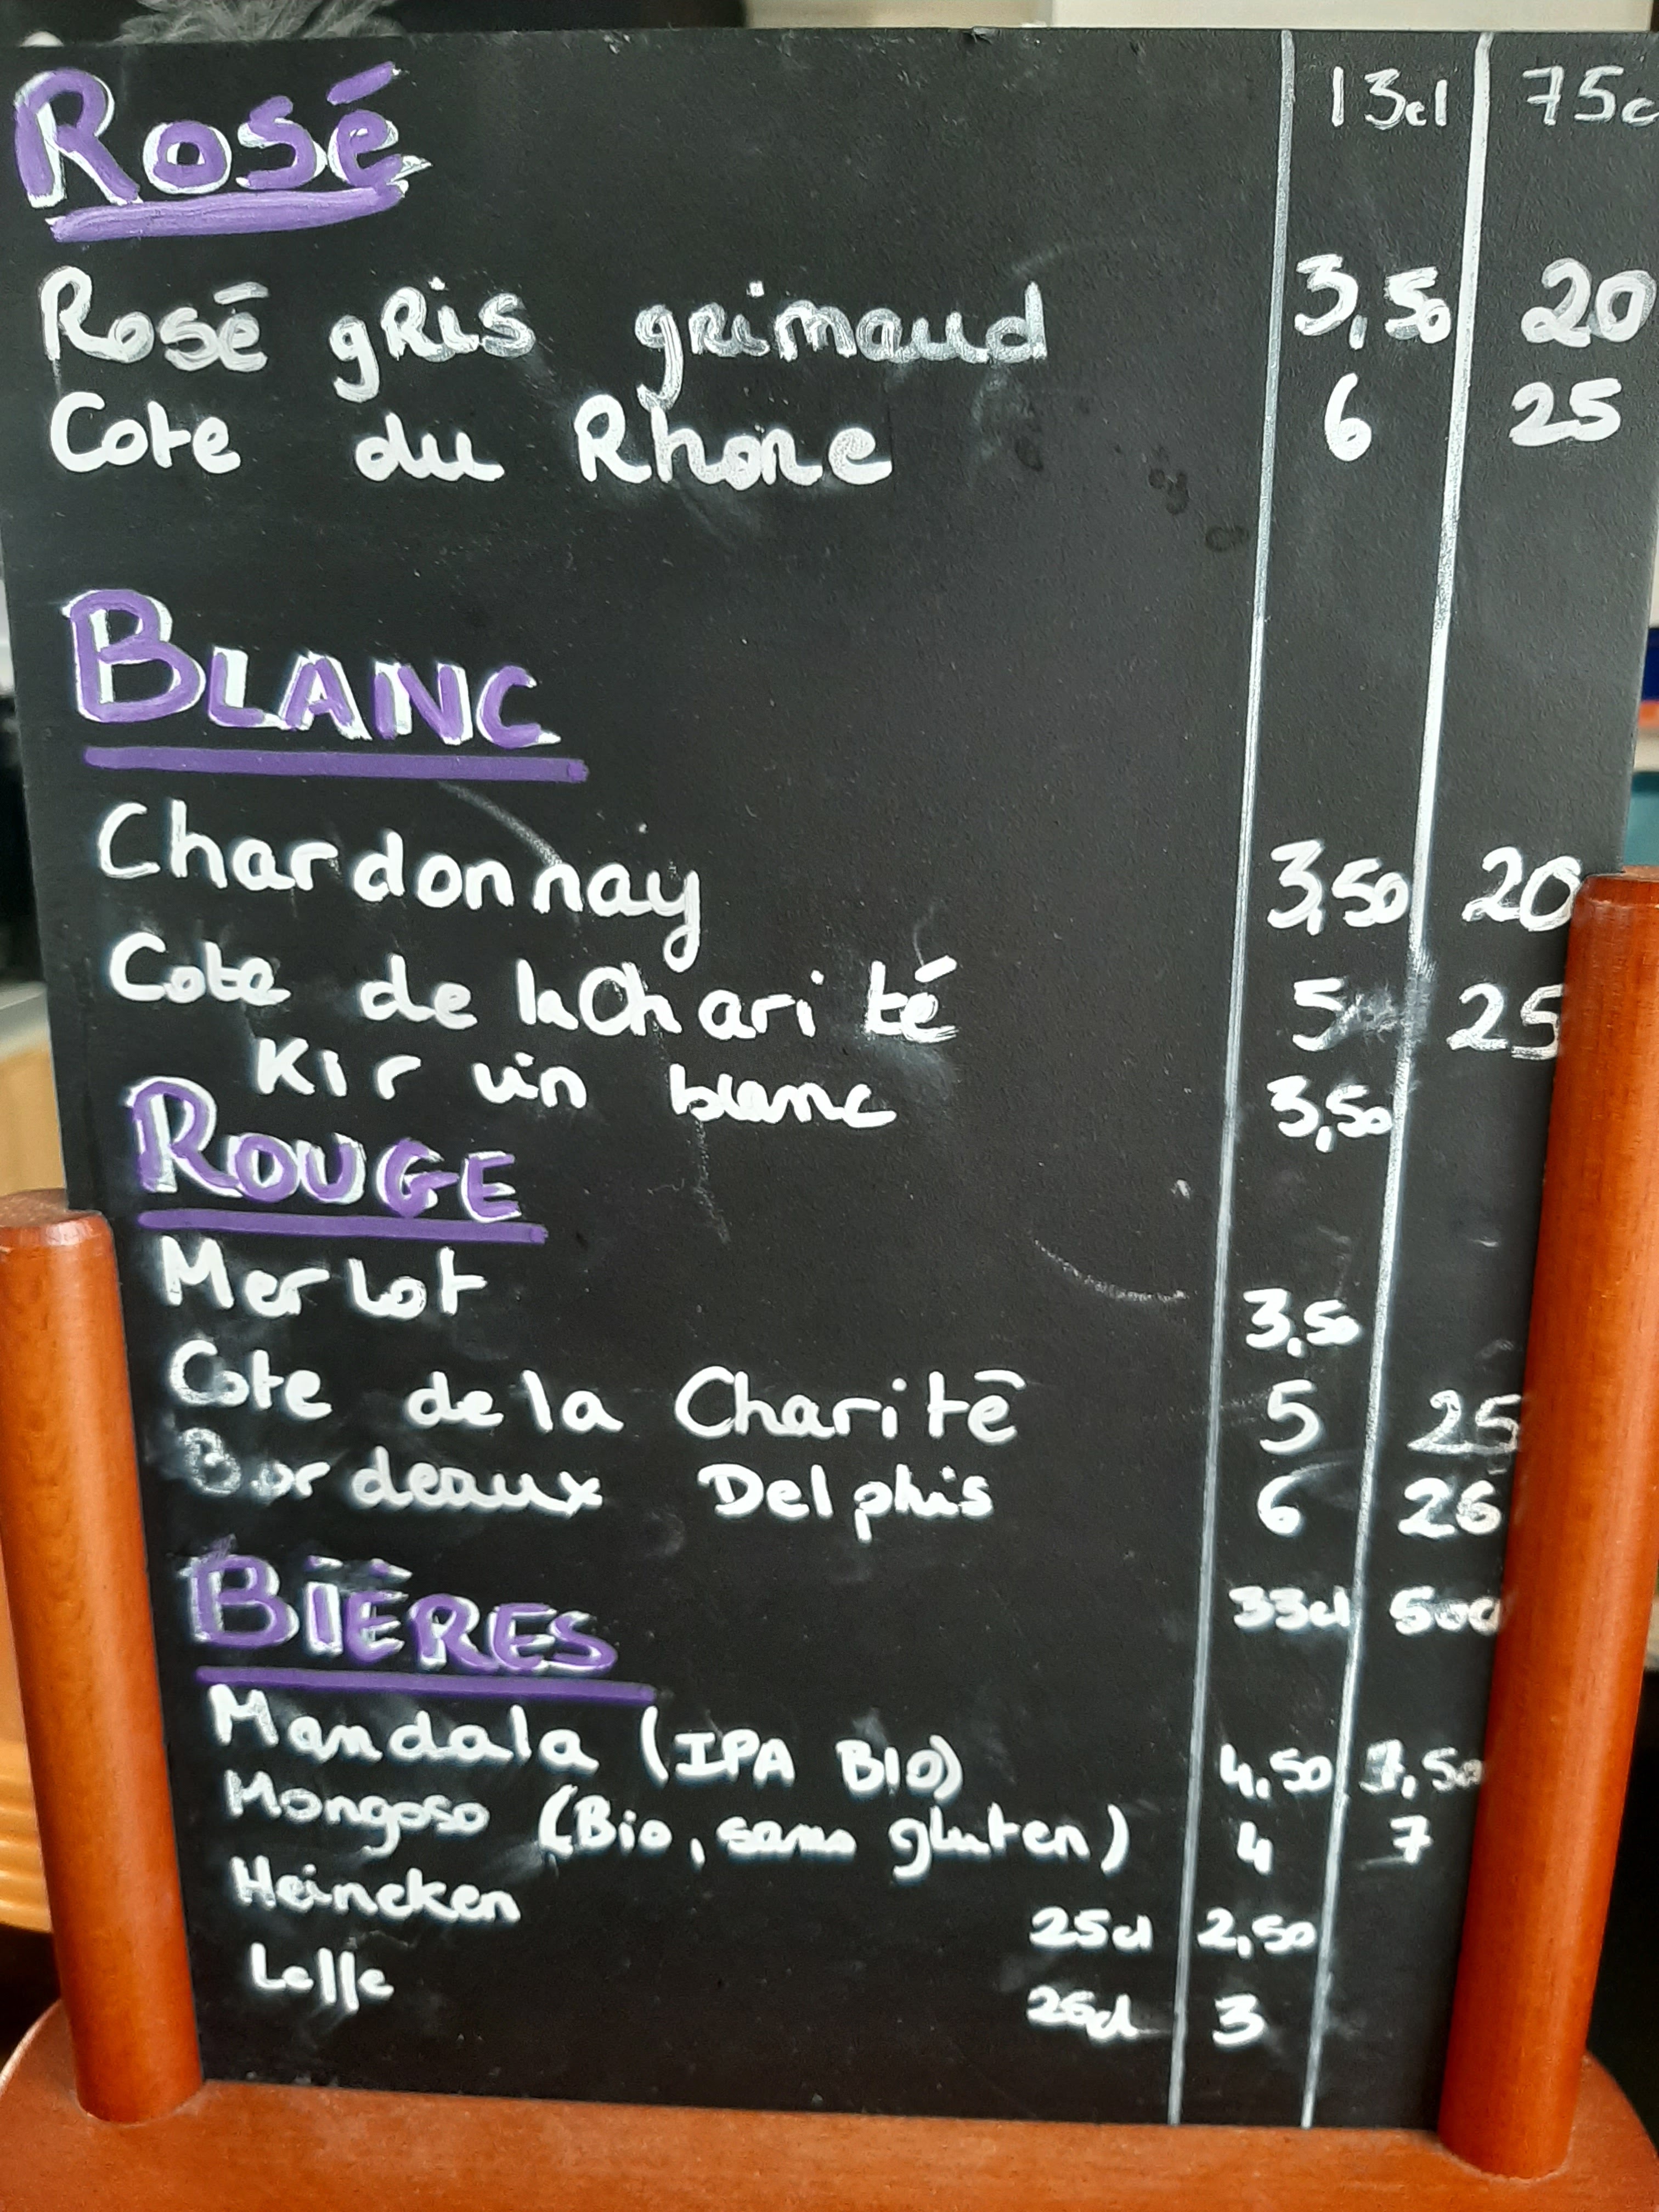 Rosé 13cl 75c
Rosé gris grimaud 3,50 20
Cote du Rhone 6 25
BLANC
Chardonnay 3,50 20
Cote de la Charité 5 25
Kir vin blanc 3,50
ROUGE
Merlot 3,50
Cote de la Charité 5 25
Bordeaux Delphis 6 26
BIÈRES 33cl 50cl
Mandala (IPA BIO) 4,50 7,50
Mongoso (Bio, sans gluten) 4 7
Heineken 25cl 2,50
Leffe 25cl 3